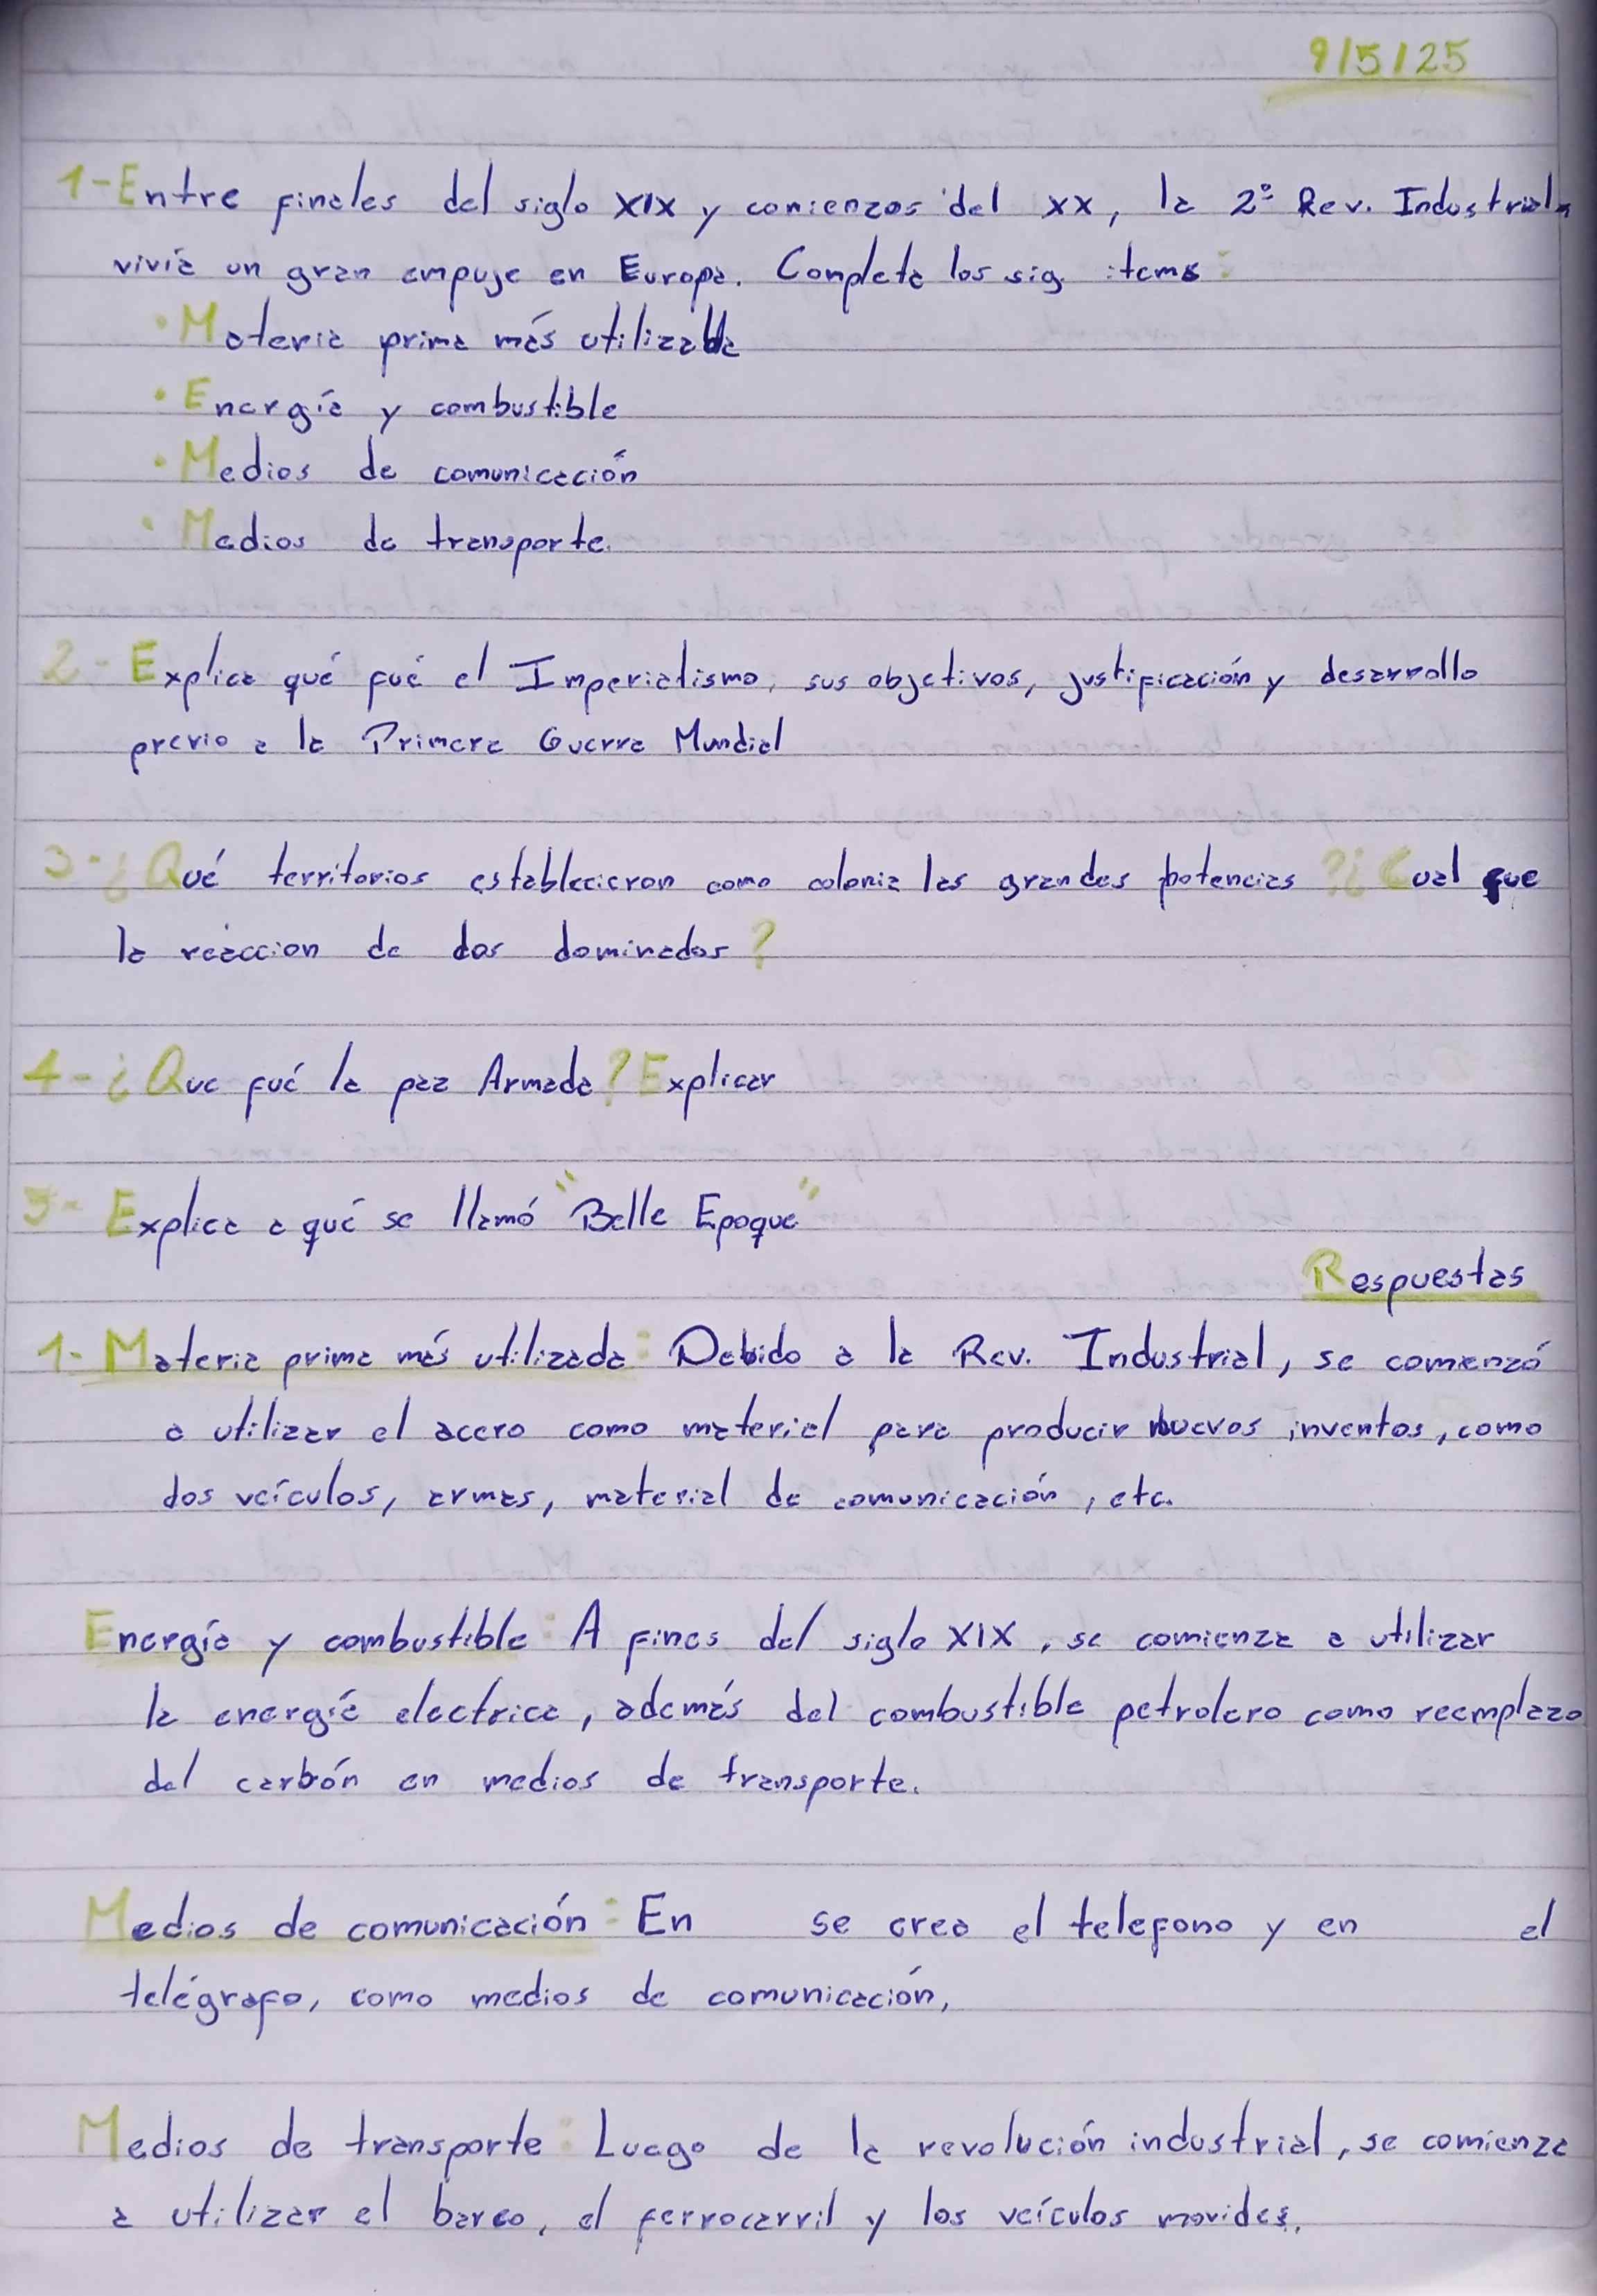 9/5/25
1-Entre finales del siglo XIX y comienzos del XX, la 2º Rev. Industrial
vivía un gran empuje en Europa. Completa los sig. items:
• Materia prima más utilizable
• Energía y combustible
• Medios de comunicación
• Medios de transporte.
2- Explica qué fué el Imperialismo, sus objetivos, justificación y desarrollo
previo a la Primera Guerra Mundial
3-¿Qué territorios establecieron como colonia las grandes potencias?¿Cual fue
la reaccion de dos dominados?
4-¿Que fué la paz Armada? Explicar
5- Explica a qué se llamó "Belle Epoque"
Respuestas
1- Materia prima más utilizada: Debido a la Rev. Industrial, se comenzó
a utilizar el acero como material para producir nuevos inventos, como
dos veículos, armas, material de comunicación, etc.
Energía y combustible: A fines del siglo XIX, se comienza a utilizar
la energía electrica, además del combustible petrolero como reemplazo
del carbón en medios de transporte.
Medios de comunicación: En se creo el telefono y en el
telégrafo, como medios de comunicación,
Medios de transporte: Luego de la revolución industrial, se comienza
a utilizar el barco, el ferrocarril y los veículos movides.